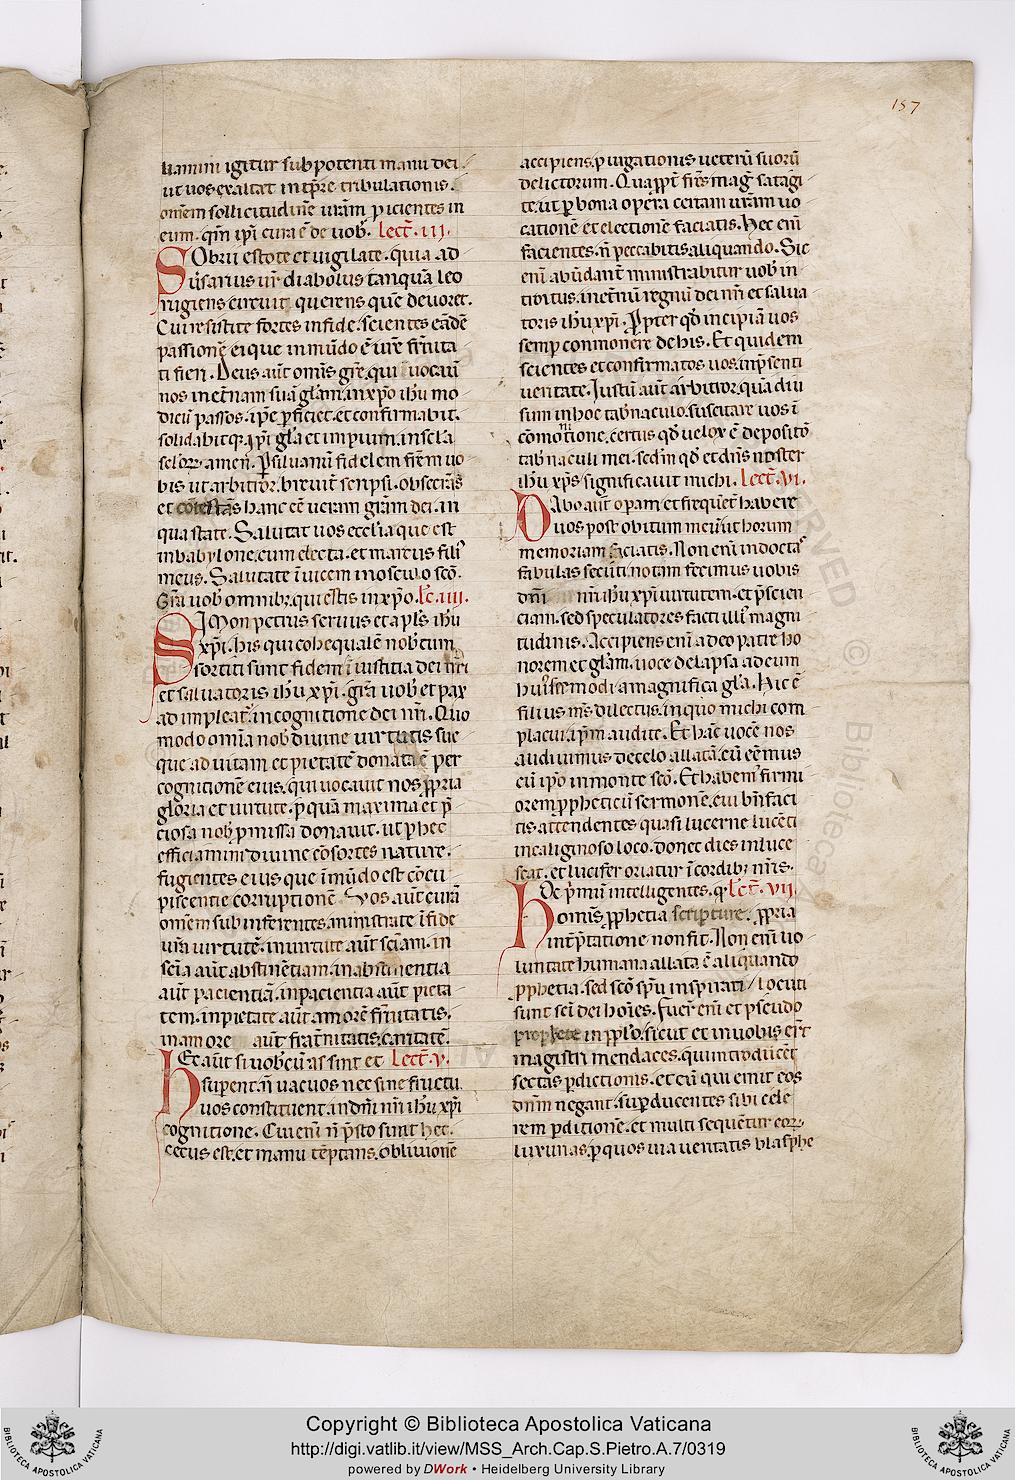 157
liamini igitur sub potenti manu dei.
ut uos exaltet in tp̄re tribulationis.
om̄em sollicitudinē ur̄am ꝓicientes in
eum. qm̄ ip̄i cura ē de uob̄. Lect̄. III.
SObrii estote et uigilate. quia ad
uˀsarius ur̄ diabolus tanquā leo
rugiens circuit querens quē deuoret.
Cui resistite fortes in fide. scientes eādē
passionē ei que in mūdo ē ur̄e fr̄nita
ti fieri. Deus aūt om̄is gr̄e. qui uocauit
nos in et̄nam suā gl̄am. in xp̄o ih̄u mo
dicū passos. ip̄e ꝑficiet. et confirmabit.
solidabitqꝫ. ip̄i gl̄a et imperium. in scl̄a
scl̄oꝝ. amen. Ꝑ siluanū fidelem fr̄em uo
bis ut arbitror. breuit̄ scripsi. obsecrās
et cōtestās hanc eē ueram gr̄am dei. in
qua state. Salutat uos eccl̄ia que est
in babylone. cum electa. et marcus filiꝰ
meus. Salutate īuicem in osculo scō.
Gr̄a uob̄ omnibꝫ. qui estis in xp̄o. Lc̄. IIII.
SIMon petrus seruus et apl̄s ih̄u
xp̄i. his qui coequalē nob̄cum
sortiti sunt fidem ī iustitia dei nr̄i
et saluatoris ih̄u xp̄i. gr̄a uob̄ et pax
adimpleat̄. in cognitione dei nr̄i. Quo
modo om̄ia nob̄ diuine uirtutis sue
que ad uitam et pietatē donata ē per
cognitionē eius. qui uocauit nos ꝓpria
gloria et uirtute. ꝑ quā maxima et p̄
ciosa nob̄ ꝓmissa donauit. ut ꝑ hec
efficiamini diuine cōsortes nature.
fugientes eius que ī mūdo est cōcu
piscentie corruptionē. Vos aūt curā
om̄em subinferentes. ministrate ī fide
ur̄a uirtutē. in uirtute aūt sciām. in
scīa aūt abstinētiam. in abstinentia
aūt pacientiā. in pacientia aūt pieta
tem. in pietate aūt amorē fr̄nitatis.
in amore aūt frat̄nitatis. caritatē.
HEc aūt si uob̄cū assint et Lect̄. V.
supent. n̄ uacuos nec sine fructu
uos constituent. in dn̄i nr̄i ih̄u xp̄i
cognitione. Cui eni n̄ p̄sto sunt hec.
cecus est. et manu tēptans. obliuionē
accipiens. purgationis ueterū suorū
delictorum. Quapp̄t fr̄es mag̅ satagi
te. ut ꝑ bona opera certam ur̄am uo
cationē et electionē faciatis. Hec eni
facientes. n̄ peccabitis aliquando. Sic
eni abūdant̄ ministrabitur uob̄ in
troitus. in et̄nū regnū dei nr̄i et salua
toris ih̄u xp̄i. Ꝓpter qd̄ incipiā uos
semp̄ conmonere de his. Et quidem
scientes et confirmatos uos. in p̄senti
ueritate. Iustū aūt arbitror. quādiu
sum in hoc tab̄naculo. suscitare uos ī
cōmonitione. certus qd̄ uelox ē depositō
tab̄naculi mei. sed̄m qd̄ et dn̄s noster
ih̄u xp̄s significauit michi. Lect̄. VI.
DAbo aūt operam et frequēt̄ habere
uos post obitum meū. ut horum
memoriam faciatis. Non eni indoctaˢ
fabulas secuti. notam fecimus uobis
dn̄i nr̄i ih̄u xp̄i uirtutem. et p̄scien
ciam. sed speculatores facti illiꝰ magni
tudinis. Accipiens eni a deo patre ho
norem et gl̄am. uoce delapsa ad eum
huiꝰcemodi a magnifica gl̄a. Hic ē
filius ms̄ dilectus. in quo michi com
placui. ip̄m audite. Et hāc uocē nos
audiuimus de celo allatā. cū eēmus
cū ip̄o in monte scō. Et habemꝰ firmi
orem ꝓpheticū sermonē. cui bn̄ faci
tis attendentes quasi lucerne lucēti
in caliginoso loco. donec dies inluce
scat. et lucifer oriatur ī cordibꝫ ur̄is.
HOc p̄mū intelligentes. qꝫ Lect̄. VII.
omīs ꝓphetia scripture. ꝓpria
int̄p̄tatione non fit. Non eni uo
luntate humana allata ē aliquando
ꝓphetia. sed scō sp̄u inspirati / locuti
sunt scī dei hoīes. Fuer̄ eni et pseudo
prophete in pp̄lo. sicut et in uobis er̄t
magistri mendaces. qui introducēt
sectas ꝑdictionis. et eū qui emit eos
dn̄m negant. suꝑducentes sibi cele
rem ꝑditionē. et multi sequētur eoꝝ
luxurias. ꝑ quos uia ueritatis blasphe
Copyright © Biblioteca Apostolica Vaticana
http://digi.vatlib.it/view/MSS_Arch.Cap.S.Pietro.A.7/0319
powered by DWork • Heidelberg University Library